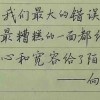 我们最大的错误
最糟糕的一面都给
心和宽容给了陌
——向